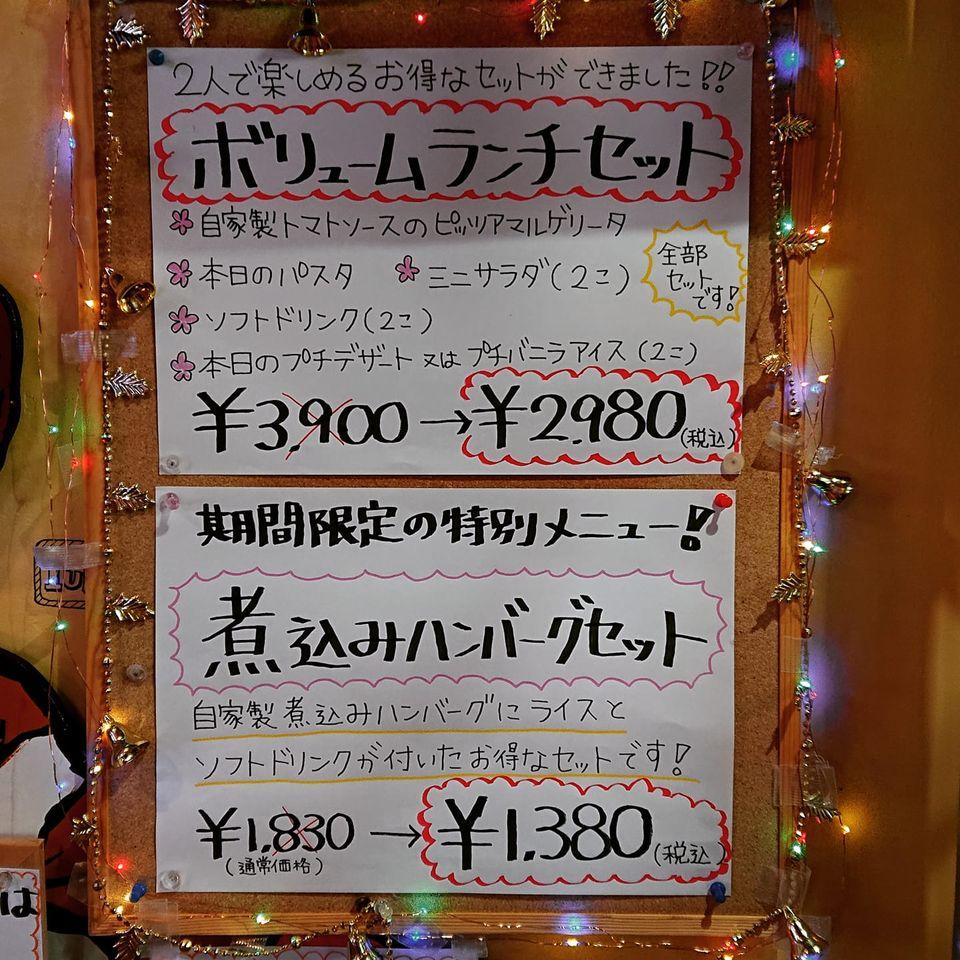 2人で楽しめるお得なセットができました!!
ボリュームランチセット
自家製トマトソースのピッツアマルゲリータ
本日のパスタ ミニサラダ(2こ)
全部
セット
です!
ソフトドリンク(2こ)
本日のプチデザート又はプチバニラアイス(2こ)
¥3,900→¥2.980(税込)
期間限定の特別メニュー!
煮込みハンバーグセット
自家製煮込みハンバーグにライスと
ソフトドリンクが付いたお得なセットです!
¥1.830→¥1.380(税込)
(通常価格)
は